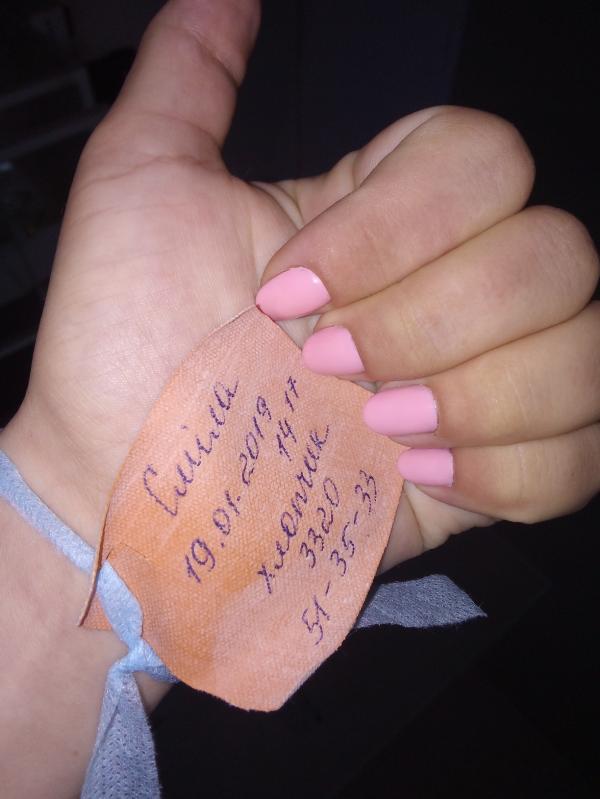 Єміла
19.01.2019
14 17
хлопчик
3320
51-35-33